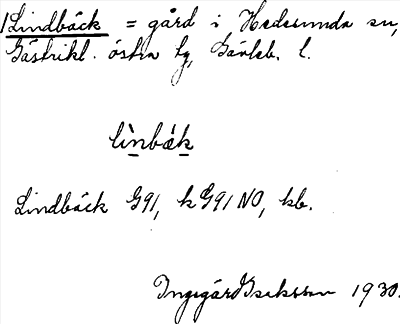 1 Lindbäck = gård i Hedesunda sn,
Gästrikl. östra tg, Gävleb. l.
lìnbäk
Lindbäck G91, k G91 NO, kb.
Ingegärd Isaksson 1930.